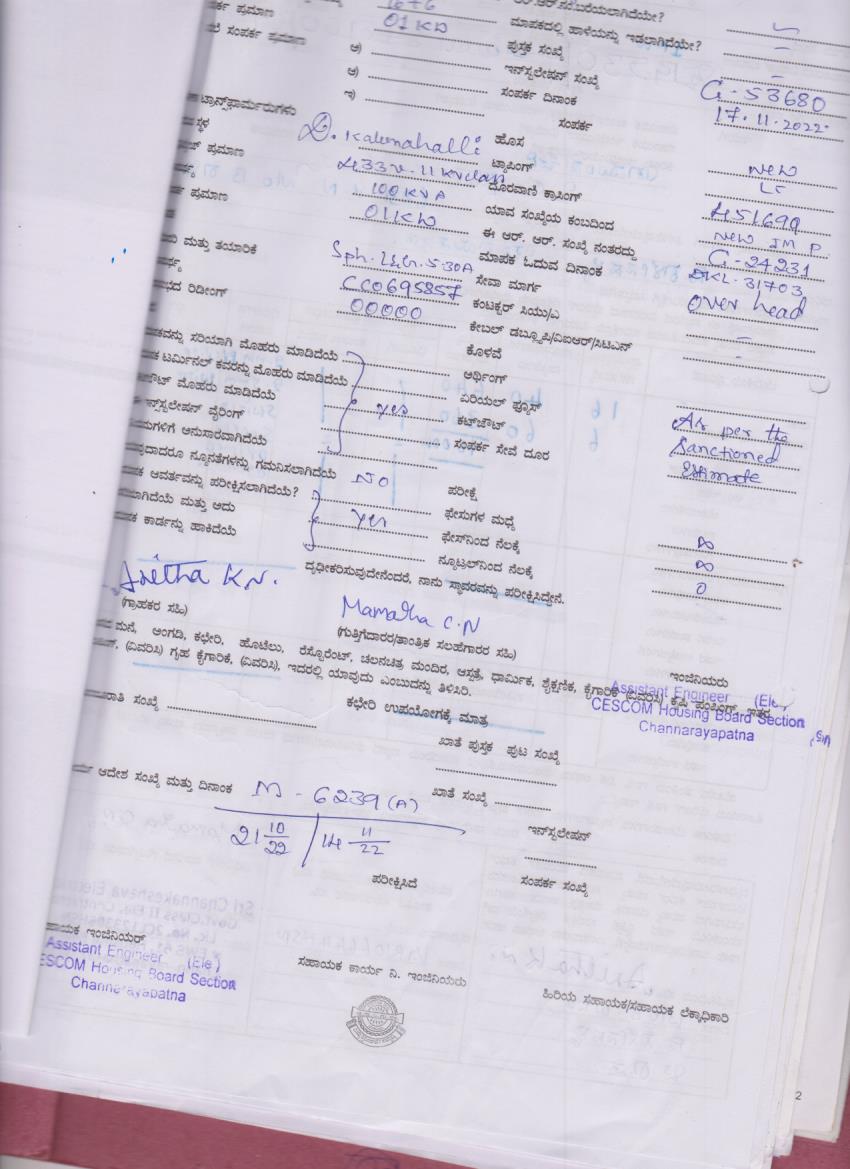 ರ್ಕ ಪ್ರಮಾಣ 16+6 ಮಾಪಕದಲ್ಲಿ ಹಾಳೆಯನ್ನು ಇಡಲಾಗಿದೆಯೇ?
ಸಂಪರ್ಕ ಪ್ರಮಾಣ 01KW ಪುಸ್ತಕ ಸಂಖ್ಯೆ –
ಅ) ಇನ್‌ಸ್ಟಲೇಷನ್ ಸಂಖ್ಯೆ –
ಆ) ಸಂಪರ್ಕ ದಿನಾಂಕ G-53680
ಇ) ಸಂಪರ್ಕ 17.11.2022
ಟ್ರಾನ್ಸ್‌ಫಾರ್ಮರುಗಳು ಹೊಸ NEW
ಸ್ಥಳ D. Kalenahalli ಟ್ಯಾಪಿಂಗ್ LT
ಪ್ರಮಾಣ 433v.11KV ದೂರವಾಣಿ ಕ್ರಾಸಿಂಗ್
100KVA ಯಾವ ಸಂಖ್ಯೆಯ ಕಂಬದಿಂದ 451690
ಪ್ರಮಾಣ 01KW ಈ ಆರ್. ಆರ್. ಸಂಖ್ಯೆ ನಂತರದ್ದು NEW JMP
ಮತ್ತು ತಯಾರಿಕೆ Sph. 5-30A ಮಾಪಕ ಓದುವ ದಿನಾಂಕ G-24231
CC0695857 ಸೇವಾ ಮಾರ್ಗ DKL-31703
ರಿಡೀಂಗ್ 00000 ಕಂಟಕ್ಟರ್ ಸಿಯು/ಎ over head
ಕೇಬಲ್ ಡಬ್ಲ್ಯೂಪಿ/ವಿಐಆರ್/ಸಿಟಿಎನ್ –
ಸರಿಯಾಗಿ ಮೊಹರು ಮಾಡಿದೆಯೆ ಕೊಳವೆ –
ಟರ್ಮಿನಲ್ ಕವರನ್ನು ಮೊಹರು ಮಾಡಿದೆಯೆ ಆರ್ಥಿಂಗ್
ಮೊಹರು ಮಾಡಿದೆಯೆ ಏರಿಯಲ್ ಫ್ಯೂಸ್
ಇನ್‌ಸ್ಟಲೇಷನ್ ವೈರಿಂಗ್ yes ಕಟ್‌ಔಟ್ As per the
ಅನುಸಾರವಾಗಿದೆಯೆ ಸಂಪರ್ಕ ಸೇವೆ ದೂರ Sanctioned
ನ್ಯೂನತೆಗಳನ್ನು ಗಮನಿಸಲಾಗಿದೆಯೆ NO Estimate
ಆವರ್ತವನ್ನು ಪರೀಕ್ಷಿಸಲಾಗಿದೆಯೆ? ಪರೀಕ್ಷೆ
ಮತ್ತು ಅದು yes ಫೇಸುಗಳ ಮಧ್ಯೆ ∞
ಕಾರ್ಡನ್ನು ಹಾಕಿದೆಯೆ ಫೇಸ್‌ನಿಂದ ನೆಲಕ್ಕೆ ∞
ನ್ಯೂಟ್ರಲ್‌ನಿಂದ ನೆಲಕ್ಕೆ 0
ದೃಢೀಕರಿಸುವುದೇನೆಂದರೆ, ನಾನು ಸ್ಥಾವರವನ್ನು ಪರೀಕ್ಷಿಸಿದ್ದೇನೆ.
K N. Mamatha C.N
(ಗ್ರಾಹಕರ ಸಹಿ) (ಗುತ್ತಿಗೆದಾರರ/ತಾಂತ್ರಿಕ ಸಲಹೆಗಾರರ ಸಹಿ) ಇಂಜಿನಿಯರು
ಮನೆ, ಅಂಗಡಿ, ಕಛೇರಿ, ಹೊಟೆಲು, ರೆಸ್ಟೋರೆಂಟ್, ಚಲನಚಿತ್ರ ಮಂದಿರ, ಆಸ್ಪತ್ರೆ, ಧಾರ್ಮಿಕ, ಶೈಕ್ಷಣಿಕ, ಕೈಗಾರಿಕೆ (ವಿವರಿಸಿ) ಕೃಷಿ ಪಂಪಿಂಗ್,
(ವಿವರಿಸಿ) ಗೃಹ ಕೈಗಾರಿಕೆ, (ವಿವರಿಸಿ), ಇದರಲ್ಲಿ ಯಾವುದು ಎಂಬುದನ್ನು ತಿಳಿಸಿರಿ.
Assistant Engineer (Ele)
CESCOM Housing Board Section
Channarayapatna
ಕಛೇರಿ ಉಪಯೋಗಕ್ಕೆ ಮಾತ್ರ
ಸಂಖ್ಯೆ
ಖಾತೆ ಪುಸ್ತಕ ಪುಟ ಸಂಖ್ಯೆ
ಆದೇಶ ಸಂಖ್ಯೆ ಮತ್ತು ದಿನಾಂಕ M - 6239 (A) ಖಾತೆ ಸಂಖ್ಯೆ
21 10/22 / 14 11/22 ಇನ್‌ಸ್ಟಲೇಷನ್
ಪರೀಕ್ಷಿಸಿದೆ ಸಂಪರ್ಕ ಸಂಖ್ಯೆ
ಇಂಜಿನಿಯರ್
Assistant Engineer (Ele)
ESCOM Housing Board Section
Channarayapatna
ಸಹಾಯಕ ಕಾರ್ಯ ನಿ. ಇಂಜಿನಿಯರು
ಹಿರಿಯ ಸಹಾಯಕ/ಸಹಾಯಕ ಲೆಕ್ಕಾಧಿಕಾರಿ
2